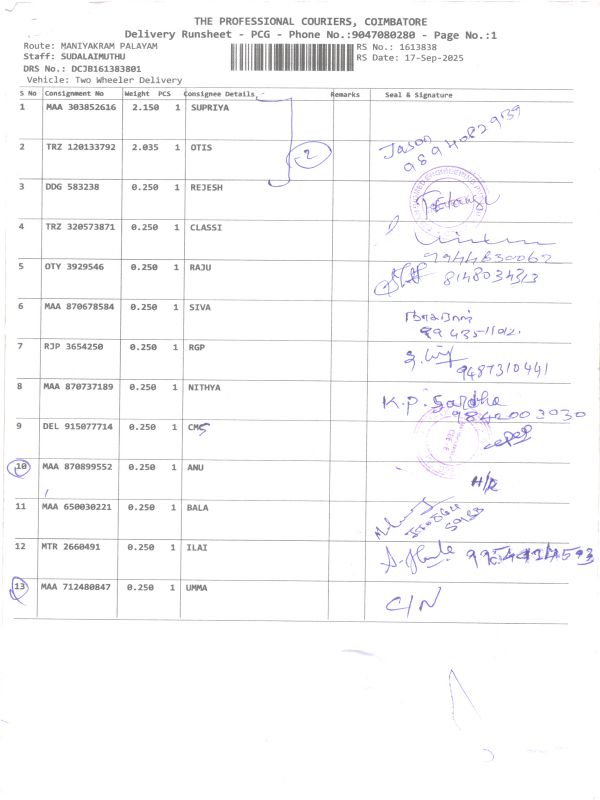 THE PROFESSIONAL COURIERS, COIMBATORE
Delivery Runsheet - PCG - Phone No.:9047080280 - Page No.:1
Route: MANIYAKRAM PALAYAM RS No.: 1613838
Staff: SUDALAIMUTHU RS Date: 17-Sep-2025
DRS No.: DCJB161383801
Vehicle: Two Wheeler Delivery
S No Consignment No Weight PCS Consignee Details, Remarks Seal & Signature
1 MAA 303852616 2.150 1 SUPRIYA
2 TRZ 120133792 2.035 1 OTIS 2 Jason 9894082939
3 DDG 583238 0.250 1 REJESH
4 TRZ 320573871 0.250 1 CLASSI 9944830067
5 OTY 3929546 0.250 1 RAJU 8148034313
6 MAA 870678584 0.250 1 SIVA
7 RJP 3654250 0.250 1 RGP 9487310441
8 MAA 870737189 0.250 1 NITHYA K.P. Sardha 9842003030
9 DEL 915077714 0.250 1 CMS
10 MAA 870899552 0.250 1 ANU
11 MAA 650030221 0.250 1 BALA
12 MTR 2660491 0.250 1 ILAI
13 MAA 712480847 0.250 1 UMMA C/N